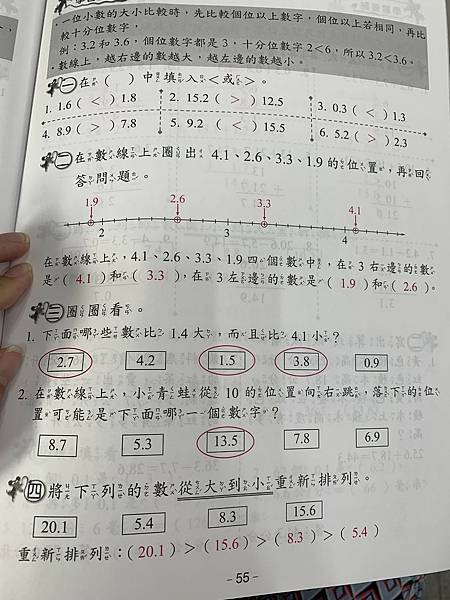 一位小數的大小比較時，先比較個位以上數字，個位以上若相同，再比
較十分位數字。
例：3.2 和 3.6，個位數字都是 3，十分位數字 2<6，所以 3.2<3.6。
數線上，越右邊的數越大，越左邊的數越小。
一 在（ ）中填入＜或＞。
1. 1.6 ( < ) 1.8 2. 15.2 ( > ) 12.5 3. 0.3 ( < ) 1.3
4. 8.9 ( > ) 7.8 5. 9.2 ( < ) 15.5 6. 5.2 ( > ) 2.3
二 在數線上圈出 4.1、2.6、3.3、1.9 的位置，再回
答問題。
1.9 2.6 3.3 4.1
2 3 4
在數線上，4.1、2.6、3.3、1.9 四個數中，在 3 右邊的數
是（ 4.1 ）和（ 3.3 ），在 3 左邊的數是（ 1.9 ）和（ 2.6 ）。
三 圈圈看。
1. 下面哪些數比 1.4 大，而且比 4.1 小？
2.7 4.2 1.5 3.8 0.9
2. 在數線上，小青蛙從 10 的位置向右跳，落下的位
置可能是下面哪一個數字？
8.7 5.3 13.5 7.8 6.9
四 將下列的數從大到小重新排列。
20.1 5.4 8.3 15.6
重新排列：( 20.1 ) > ( 15.6 ) > ( 8.3 ) > ( 5.4 )
- 55 -